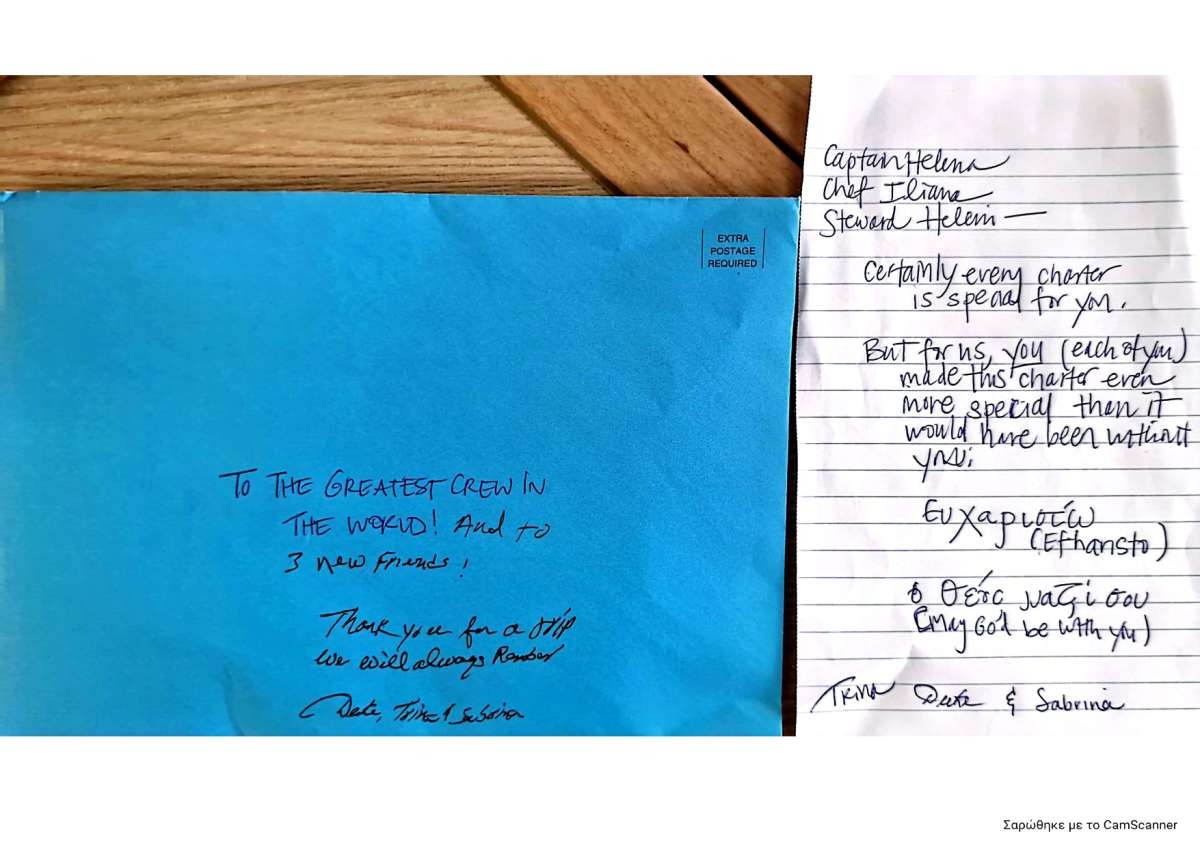 EXTRA
POSTAGE
REQUIRED
TO THE GREATEST CREW IN
THE WORLD! And to
3 new Friends!
Thank you for a trip
we will always
Trina & Sabrina
Captain Helena
Chef Iliana
Steward Heleni —
Certainly every charter
is special for you.
But for us, you (each of you)
made this charter even
more special than it
would have been without
you.
Ευχαριστώ
(Efharisto)
ο Θεός μαζί σου
(May God be with you)
Trina & Sabrina
Σαρώθηκε με το CamScanner